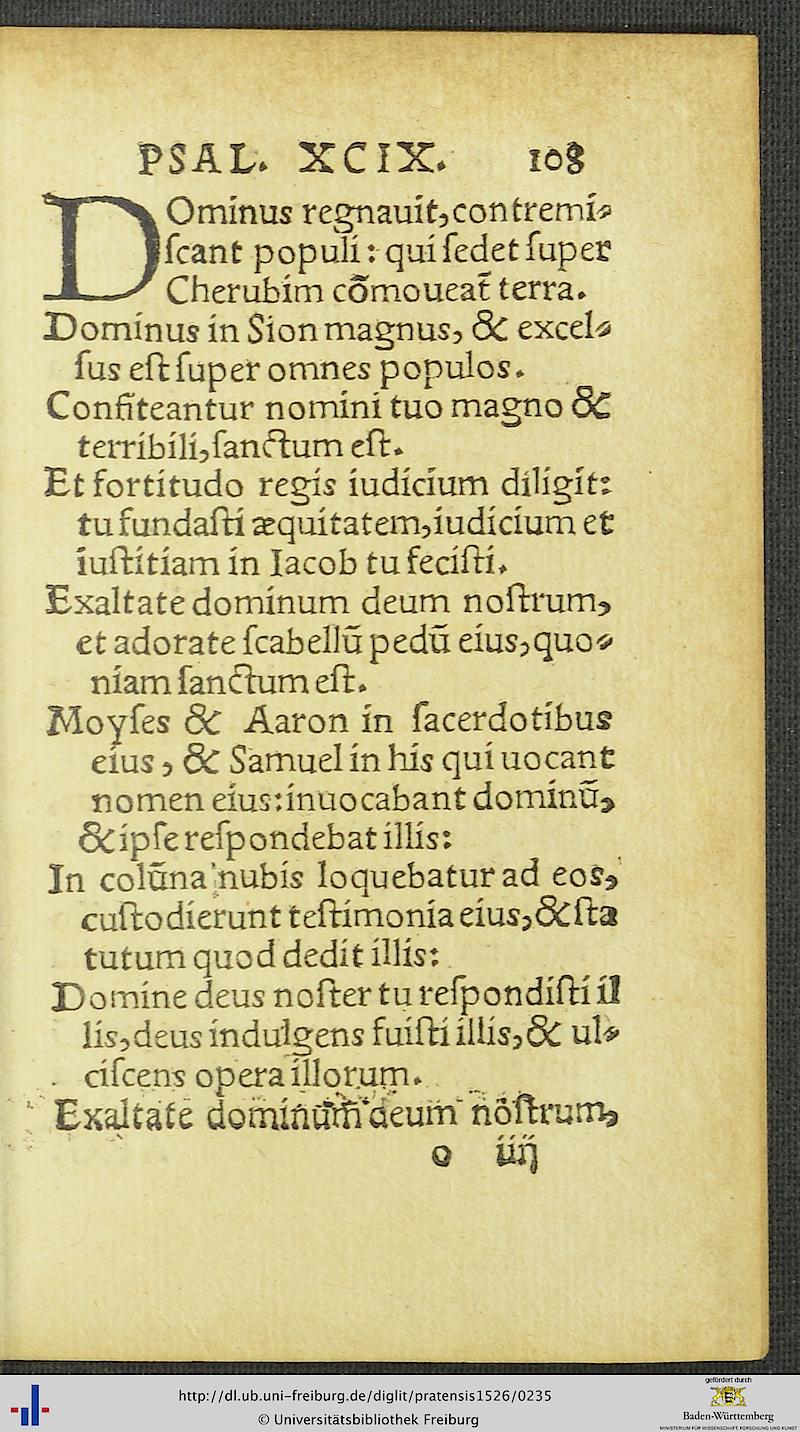 PSAL. XCIX. 108
DOminus regnauit, contremi-
ſcant populi: qui ſedet ſuper
Cherubim cõmoueat̃ terra.
Dominus in Sion magnus, & excel-
ſus eſt ſuper omnes populos.
Confiteantur nomini tuo magno &
terribili, ſanctum eſt.
Et fortitudo regis iudicium diligit:
tu fundaſti æquitatem, iudicium et
iuſtitiam in Iacob tu feciſti.
Exaltate dominum deum noſtrum,
et adorate ſcabellũ pedũ eius, quo-
niam ſanctum eſt.
Moyſes & Aaron in ſacerdotibus
eius, & Samuel in his qui uocant
nomen eius: inuocabant dominũ,
& ipſe reſpondebat illis:
In colũna nubis loquebatur ad eos,
cuſtodierunt teſtimonia eius, & ſta
tutum quod dedit illis:
Domine deus noſter tu reſpondiſti il
lis, deus indulgens fuiſti illis, & ul-
ciſcens opera illorum.
Exaltate dominum deum noſtrum,
o iiij
http://dl.ub.uni-freiburg.de/diglit/pratensis1526/0235
© Universitätsbibliothek Freiburg
gefördert durch
Baden-Württemberg
MINISTERIUM FÜR WISSENSCHAFT, FORSCHUNG UND KUNST